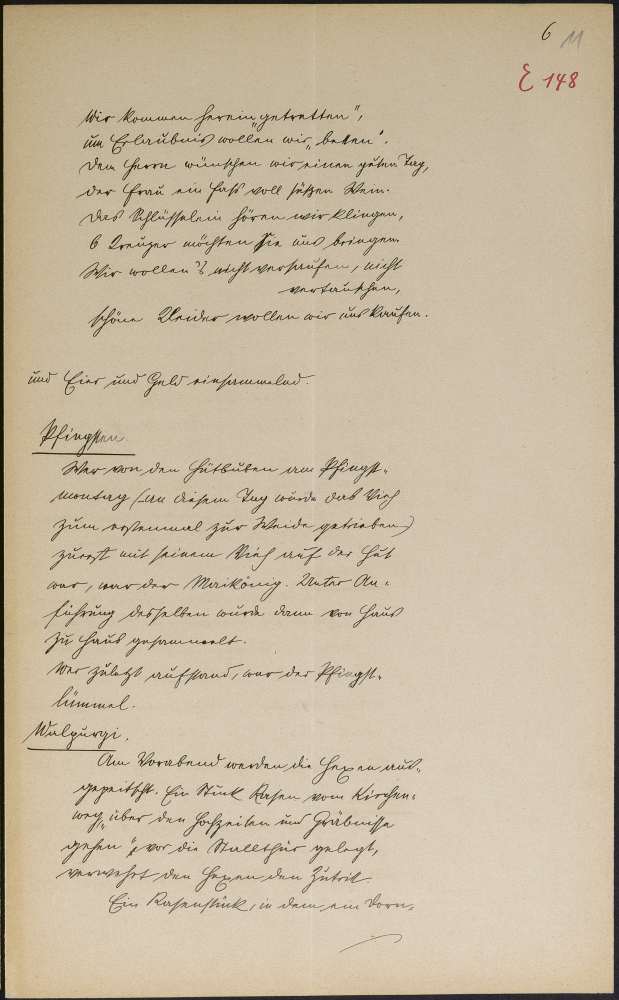 6 11
E 148
Wir kommen herein „getretten",
um Erlaubnis wollen wir „beten".
Dem Herrn wünschen wir einen guten Tag,
der Frau ein Faß voll süßen Wein.
Das Schlüsselein hören wir klingen,
6 Kreuzer möchten Sie uns bringen.
Wir wollen's nicht versaufen, nicht
vertauschen,
schöne Kleider wollen wir uns kaufen.
und Eier und Geld einsammelnd.
Pfingsten.
Wer von den Hütbuben am Pfingst-
montag (an diesem Tag wurde das Vieh
zum erstenmal zur Weide getrieben)
zuerst mit seinem Vieh auf der Hut
war, war der Maikönig. Unter An-
führung desselben wurde dann von Haus
zu Haus gesammelt.
Wer zuletzt aufstand, war der Pfingst-
lümmel.
Walpurgi.
Am Vorabend werden die Hexen aus-
gepeitscht. Ein Stück Rasen vom Kirchen-
weg, „über den Hochzeiten und Gräbnisse
gehen", vor die Stallthür gelegt,
verwehrt den Hexen den Zutrit.
Ein Rasenstück, in dem ein Dorn-